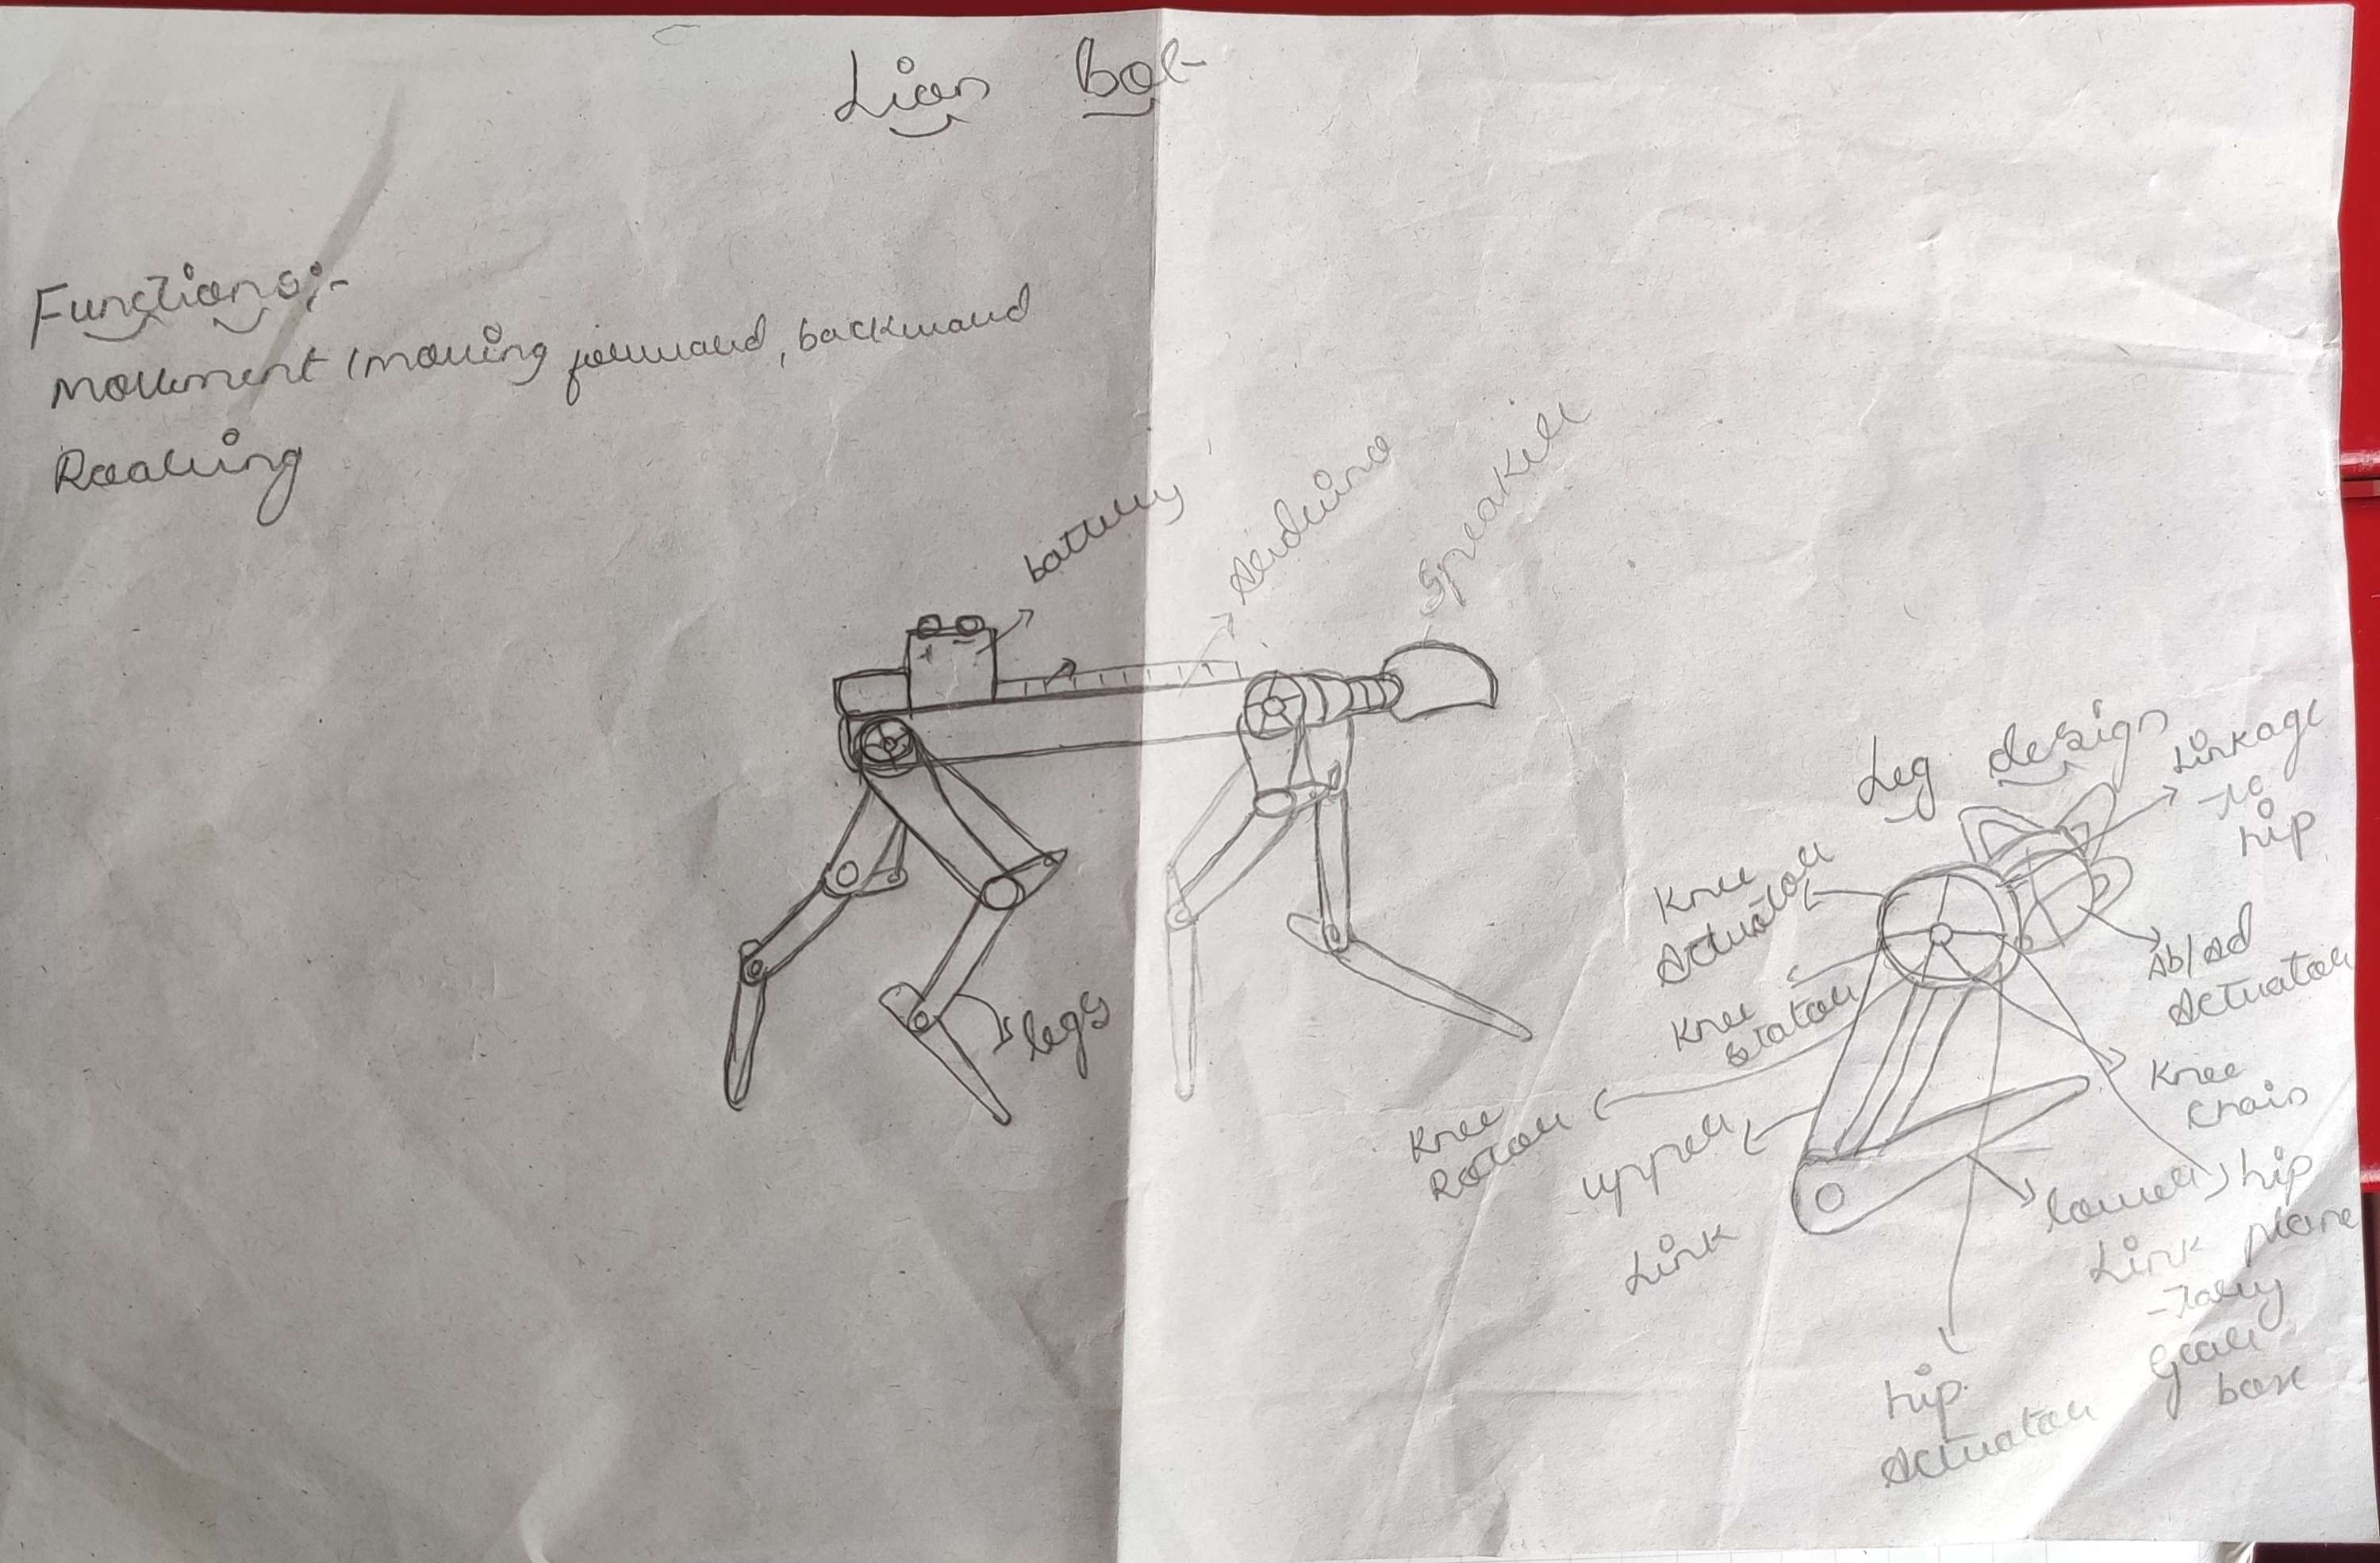 Lion Bot
Functions:-
Movement (moving forward, backward
Roaring
battery
Arduino
Speaker
legs
Leg design
Linkage
to
hip
Knee
Actuator
Ab/Ad
Actuator
Knee
Stator
Knee
Chain
Knee
Rotor
upper
Link
lower
Link
hip
plane
-tary
Gear
box
hip
Actuator
+ -